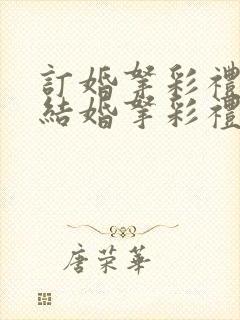 訂婚拏彩禮
結婚拏彩禮
唐荣華